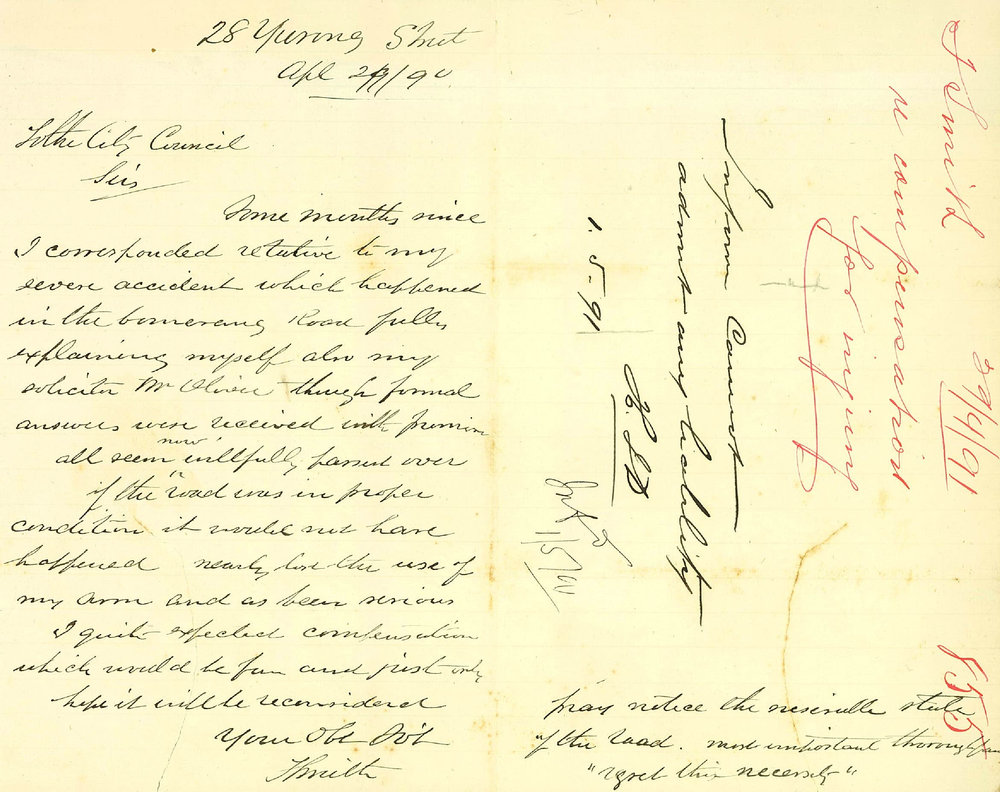 28 Yurong Street
Apl 29/90
To the City Council
Sirs
Some months since
I corresponded relative to my
severe accident which happened
in the bomerang Road fully
explaining myself also my
solicitor Mr Oliver though formal
answers were received with promise
all seem now willfully passed over
if the road was in proper
condition it would not have
happened nearly lost the use of
my arm and as been serious
I quite expected compensation
which would be fair and just only
hope it will be reconsidered
Your Obt Svt
J Smith
pray notice the miserable state
of the road. most important thoroughfare
"regret this necessity"
Inform Cannot
admit any liability
1.5.91
1/5/91
J Smith
re compensation
for injury
29/4/91
855